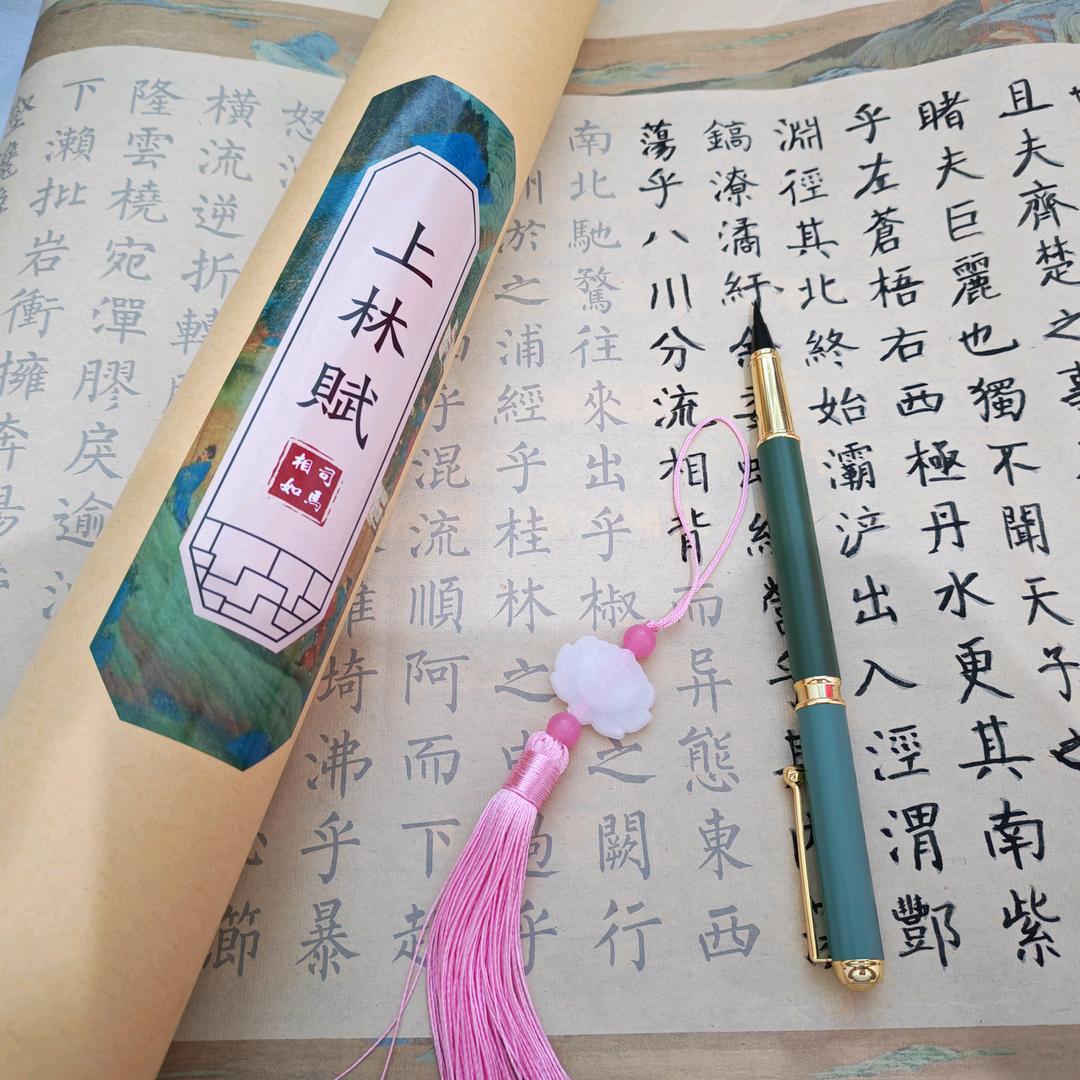 上林賦
司馬
相如
且夫齊楚之事
睹夫巨麗也獨不聞天子之
乎左蒼梧右西極丹水更其南紫
淵徑其北終始灞浐出入涇渭酆
鎬潦潏紆
蕩乎八川分流相背而异態東西
南北馳騖往來出乎椒之闕行
洲於之浦經乎桂林之中過乎
乎混流順阿而下赴
埼沸乎暴
怒節
橫流逆折轉
隆雲橈宛潬膠戾逾
下瀨批岩衝擁奔揚